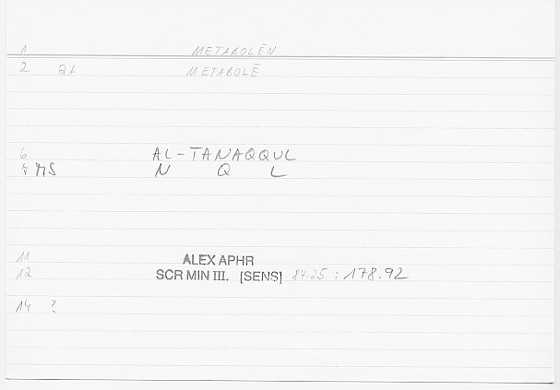 1 METABOLĒN
2 Q1 METABOLĒ
6 AL-TANAQQUL
7 MS N Q L
11 ALEX APHR
12 SCR MIN III. [SENS] 84.25 : 178.92
14 ?